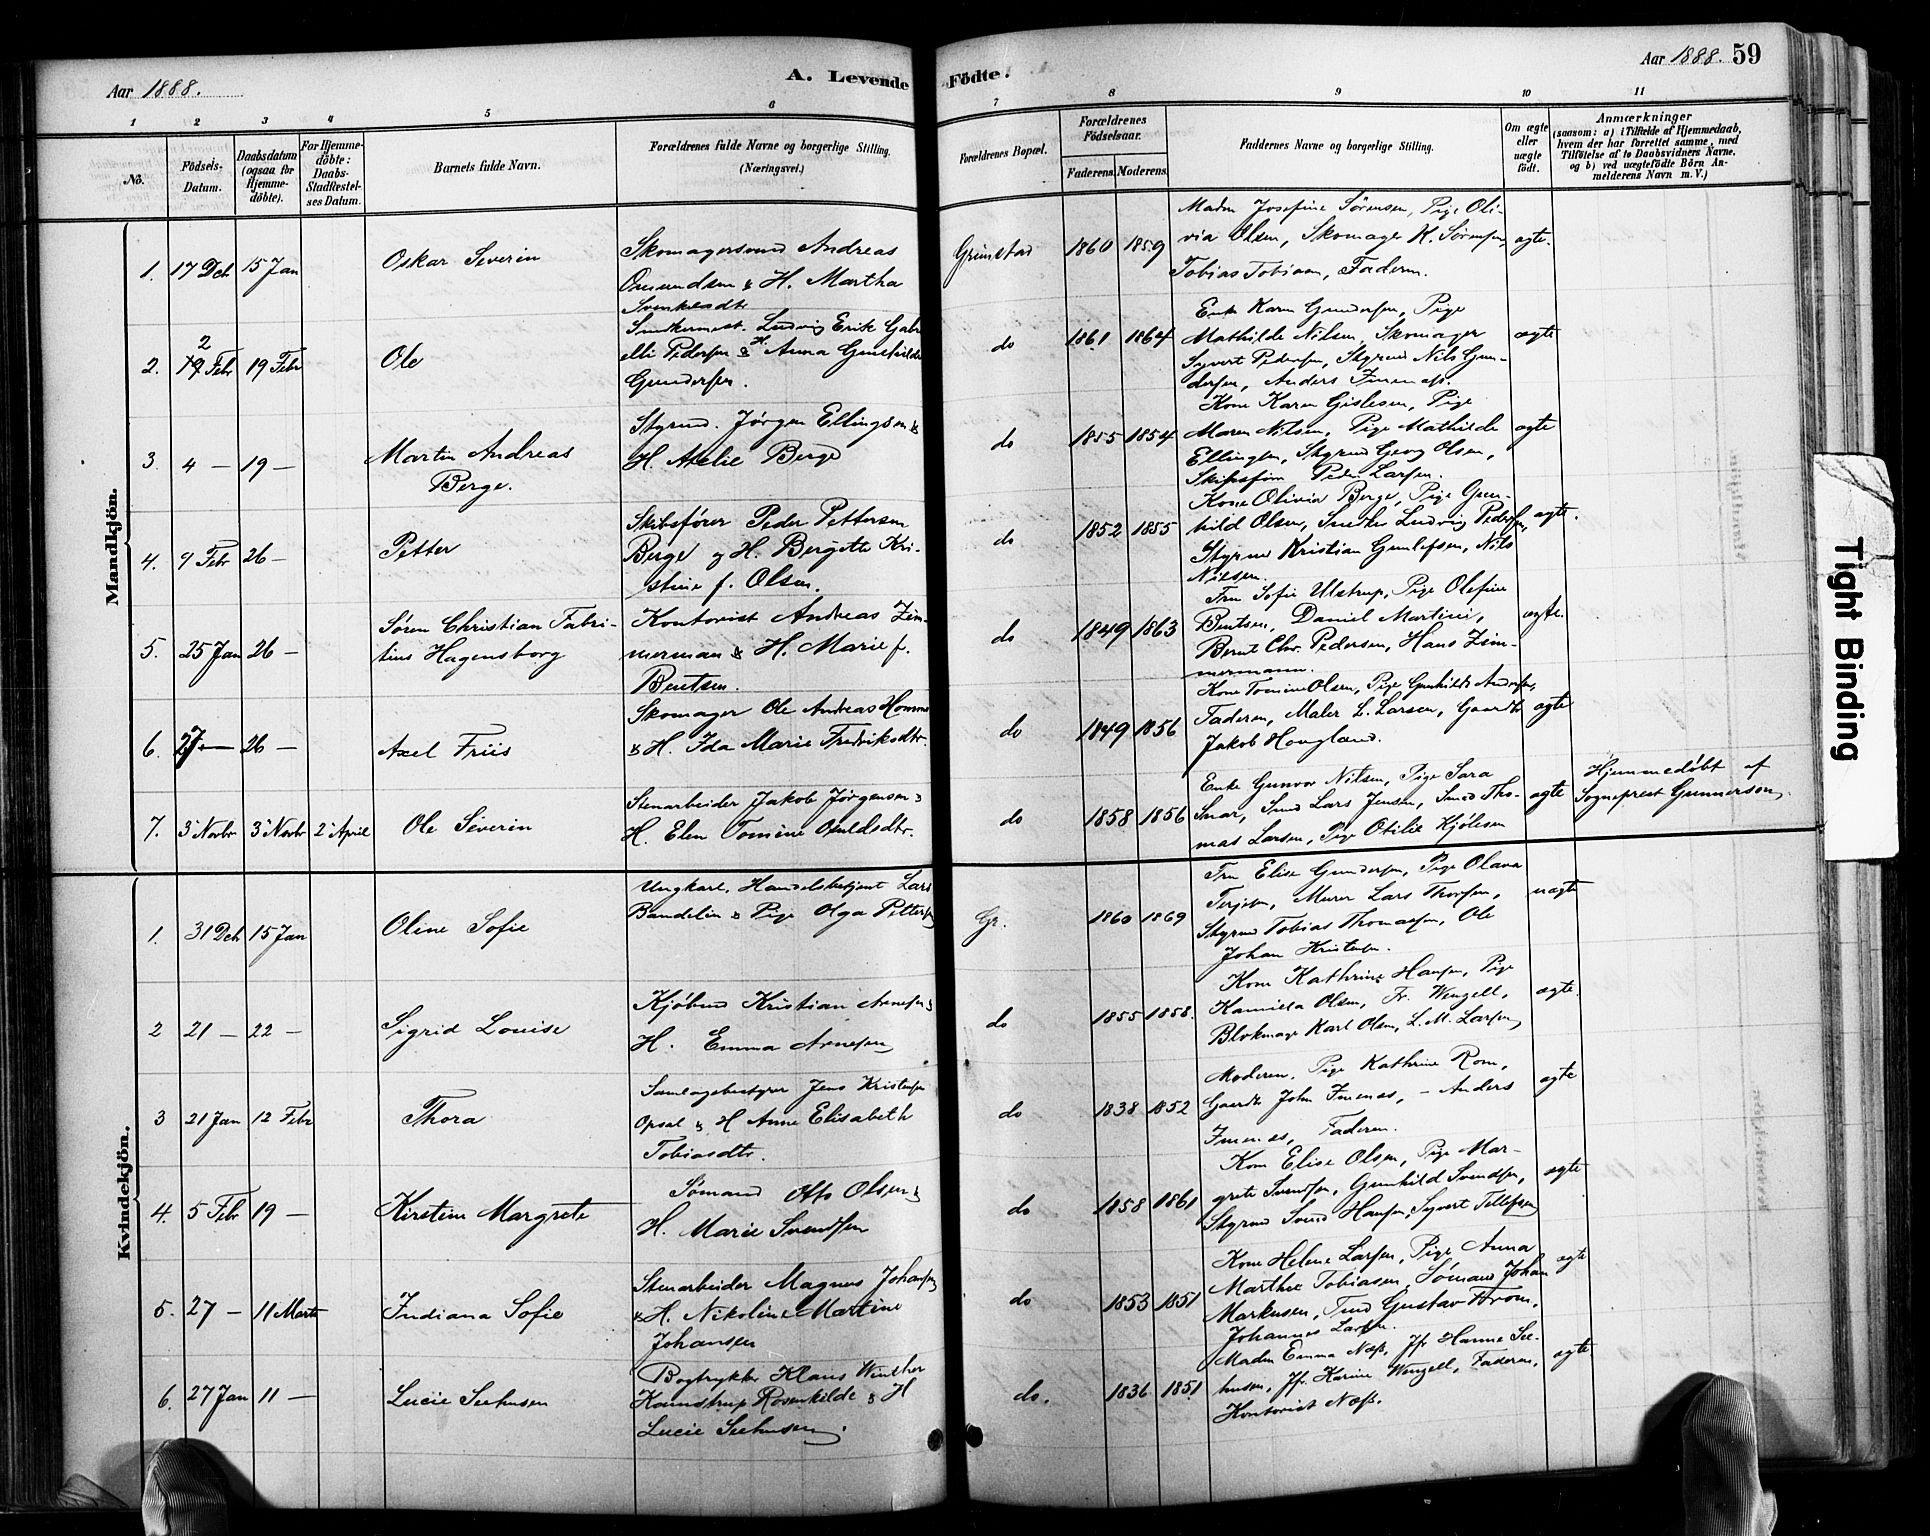 Aar 1888.
A. Levende Födte.
Aar 1888. 59
1 2 3 4 5 6 7 8 9 10 11
No.
Födsels-Datum.
Daabsdatum (ogsaa for Hjemmedöbte).
For Hjemmedöbte: Daabs-Stadfæstelses Datum.
Barnets fulde Navn.
Forældrenes fulde Navne og borgerlige Stilling.
(Næringsvei.)
Forældrenes Bopæl.
Forældrenes Födselsaar.
Faderens. Moderens.
Faddernes Navne og borgerlig Stilling.
Om ægte eller uægte födt.
Anmærkninger
(saasom: a) i Tilfælde af Hjemmedaab, hvem der har forrettet samme, med Tilföielse af to Daabsvidners Navne, og b) ved uægtefödte Börn Anmelderens Navn m. V.)
Mandkjön.
1. 17 Dcb 15 Jan Oskar Severin
Skomagersvend Andreas
Omundsen & H. Martha
Svenkesdtr
Grimstad 1860 1859
Madm Josefine Sørensen, Pige Oli-
via Olsen, Skomager H. Sørensen,
Tobias Tobiasen, Faderen.
ægte.
2. 2 Febr 19 Febr Ole
Snedkermest. Ludvig Erik Gabri
elli Pedersen & H. Anna Gunhilde
Gundersen.
do 1861 1864
Enke Karen Gundersen, Pige
Mathilde Nilsen, Skomager
Syvert Pedersen, Styrmd Nils Gun-
dersen, Anders Imenæs.
ægte
3. 4 — 19 — Martin Andreas
Berge.
Styrmd. Jørgen Ellingsen &
H. Atelie Berge
do 1855 1854
Kone Karen Gislesen, Pige
Maren Nilsen, Pige Mathilde
Ellingsen, Styrmd Georg Olsen,
Skipsfører Peder Larsen.
ægte
4. 9 Febr 26 — Petter
Skibsfører Peder Pettersen
Berge og H. Bergitte Kri-
stine f. Olsen.
do 1852 1855
Kone Olivia Berge, Pige Gun-
hild Olsen, Snedker Ludvig Pedersen,
Styrmd Kristian Gunlefsen, Nils
Nilsen.
ægte.
5. 25 Jan 26 — Søren Christian Fabri-
tius Hagensborg
Kontorist Andreas Zim-
merman & H. Marie f.
Bentsen.
do 1849 1863
Fru Sofie Ulstrup, Pige Olefine
Bentsen, Daniel Martini,
Bernt Chr. Pedersen, Hans Zim-
mermann.
ægte.
6. 27 — 26 — Axel Friis
Skomager Ole Andreas Homme
& H. Ida Marie Fredriksdtr.
do 1849 1856
Kone Tomine Olsen, Pige Gunhilde Andersen,
Faderen, Maler L. Larsen, Gaardb
Jakob Hougland.
ægte
7. 3 Novbr 3 Novbr 2 April Ole Severin
Stenarbeider Jakob Jørgensen &
H. Elen Tomine Osuldsdtr.
do 1858 1856
Enke Gunvor Nilsen, Pige Sara
Snar, Smed Lars Jensen, Smed Tho-
mas Larsen, Pige Otilie Kjølesen
ægte
Hjemmedøbt af
Sogneprest Gunnersen.
Kvindekjön.
1. 31 Dcb 15 Jan Oline Sofie
Ungkarl. Handelsbetjent Lars
Bandelin & Pige Olga Petters
Gr. 1860 1869
Fru Elise Gundersen, Pige Olava
Terjesen, Murer Lars Thorsen,
Styrmd Tobias Thomassen, Ole
Johan Kristensen.
uægte
2 21 — 22 — Sigrid Louise
Kjøbmd Kristian Arnesen &
H. Emma Arnesen
do 1855 1858.
Kone Kathrine Hansen, Pige
Kamilla Olsen, Fr. Wenzell,
Blokmager Karl Olsen, L. M. Larsen
ægte.
3 21 Jan 12 Febr Thora
Samlagsbestyrer Jens Kristensen
Opsal & H Anne Elisabeth
Tobiasdtr.
do 1838 1852
Moderen, Pige Kathrine Rom,
Gaardb John Imenæs, — Anders
Imenæs, Faderen.
ægte
4. 5 Febr 19 — Kirstine Margrete
Sømand Otto Olsen &
H. Marie Svendsen
do 1858 1861
Kone Elise Olsen, Pige Mar-
grete Svendsen, Gunhild Svendsen,
Styrmd Svend Hansen, Syvert Tellefsen
ægte
5. 27 — 11 Marts Indiana Sofie
Stenarbeider Magnus Johansen
& H. Nikoline Martine
Johansen
do 1853 1851
Kone Helene Larsen, Pige Anna
Marthea Tobiasen, Sømand Johan
Markusen, Tmd Gustav From,
Johannes Larsen.
ægte
6. 27 Jan 11 — Lucie Seehusen
Bogtrykker Klaus Winther
Kamstrup Rosenkilde & H
Lucie Seehusen.
do. 1836 1851
Madm Emma Næss, Jfr Hanne See-
husen, Jfr. Karine Wenzell, Faderen,
Kontorist Næss.
ægte
Tight Binding